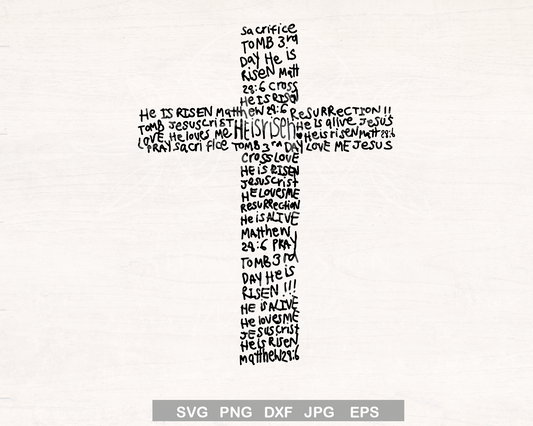 sacrifice
TOMB 3rd
DAY He is
RiseN Matt
28:6 Cross
He IS RISEN
He IS RISEN Matthew 28:6 ResuRRecTiON!!
TOMB JesusCrisT HEisrisen He is alive Jesus
LOVE He loves ME ♥ He is risen Matt 28:6
PRAY sacrifice TOMB 3rd DAY LOVE ME JESUS
CROSS LOVE
He is RISEN
JesusCrist
HE LOVES ME
ResuRRection
He is ALIVE
MaTThew
28:6 PRAY
TOMB 3rd
DAY He is
RISEN !!!
He is ALIVE
He loves ME
JESUS Crist
He is RISEN
Matthew 28:6
SVG PNG DXF JPG EPS